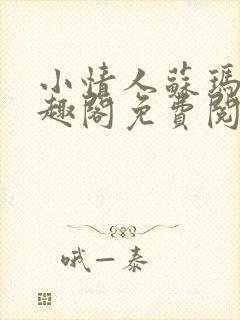 小情人蘇瑪
趣閣免費閱
哦一泰